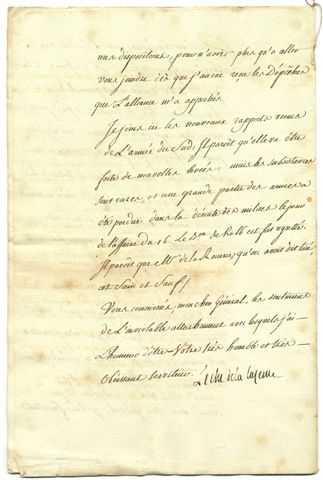 mes dispositions, pour n'avoir plus qu'à aller
vous joindre dès que j'aurai reçu les Dépêches
que L'alliance m'a apportées.
Je joins ici les nouveaux rapports venus
de L'armée du Sud; Il paroit qu'elle va être
forte de nouvelles levées; mais les subsistances
sont rares, et une grande partie des armes a
été perdue dans la déroute des milices le jour
de l'affaire du 16. Le Bon de Kalb est fort regretté.
Il paroit que Mr. de la Rouerie, qu'on avoit dit tué,
est Sain et Sauf.
Vous connoissés, mon cher Général, les sentimens
de L'inviolable attachement avec lesquels j'ai
L'honneur d'être Votre très humble et très
Obéissant serviteur. Le chr de la Luzerne